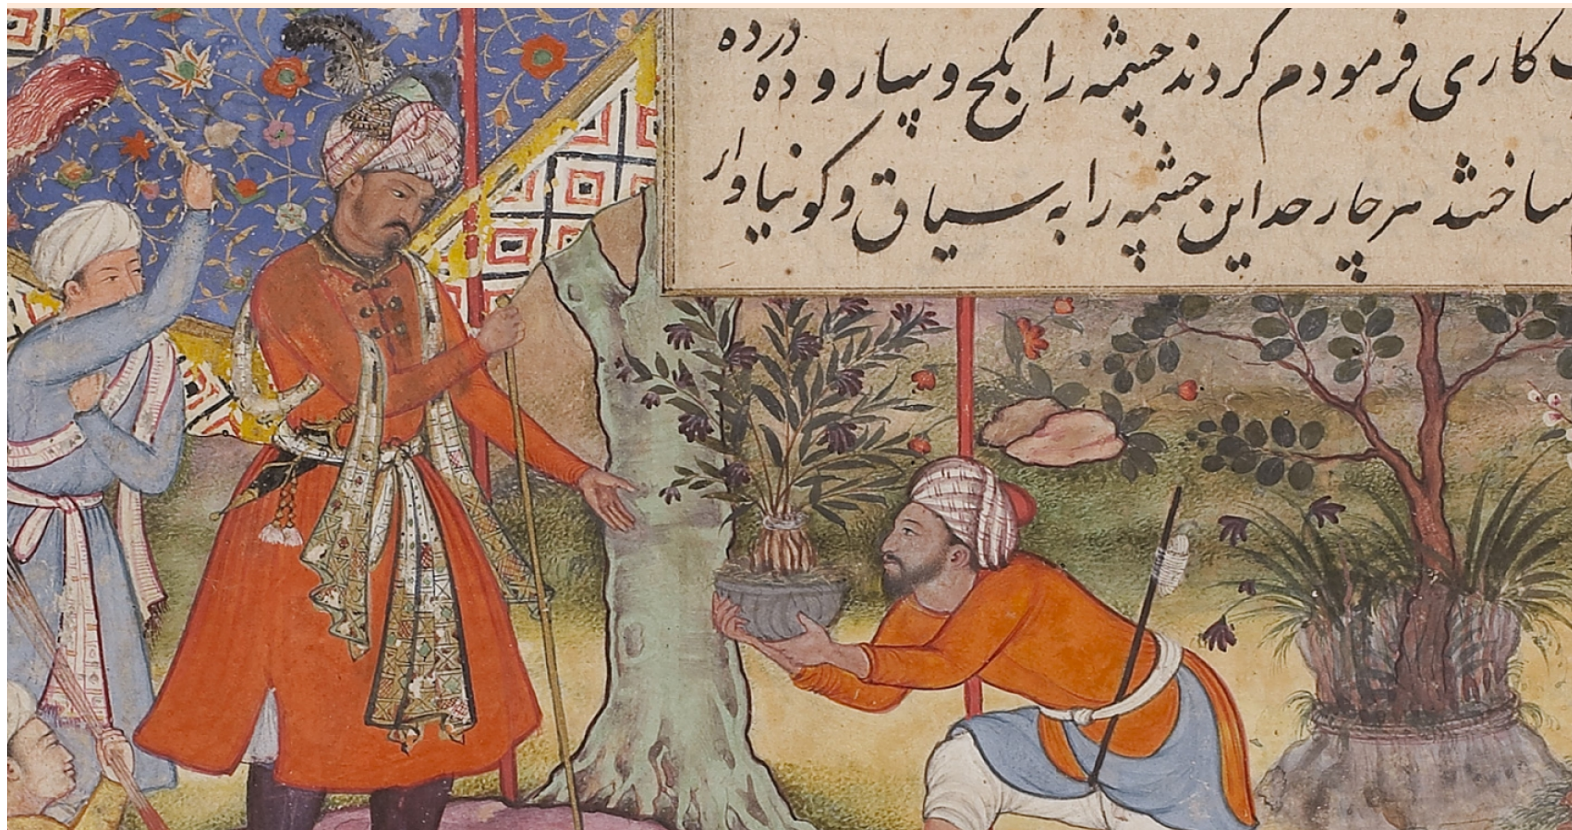 کاری فرمودم کردند چشمه را بکج و سارو ده درده
ساختند هر چار حد این چشمه را به سیاق و کونیا وار